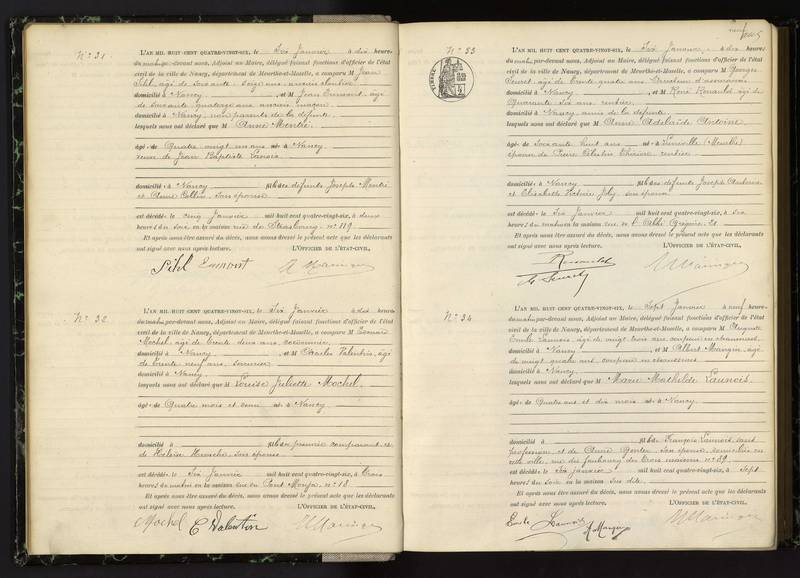 N° 31
L'AN MIL HUIT CENT QUATRE-VINGT-SIX, le Six Janvier à dix heures
du matin par-devant nous, Adjoint au Maire, délégué faisant fonctions d'officier de l'état
civil de la ville de Nancy, département de Meurthe-et-Moselle, a comparu M Jean
Pitel, âgé de soixante
de soixante quatorze ans ancien maçon
domicilié à Nancy, et M Jean
domicilié à Nancy, non parents de la défunte
lesquels nous ont déclaré que M Anne Mentré.
âgée de Quatre vingt un ans née à Nancy
veuve de Jean Baptiste
domiciliée à Nancy fille des défunts Joseph Mentré
et Anne Collin, son épouse
est décédée le cinq Janvier mil huit cent quatre-vingt-six, à deux
heures du soir en la maison rue de Strasbourg, n° 119.
Et après nous être assuré du décès, nous avons dressé le présent acte que les déclarants
ont signé avec nous après lecture. L'OFFICIER DE L'ÉTAT-CIVIL,
Pitel
N° 32
L'AN MIL HUIT CENT QUATRE-VINGT-SIX, le Six Janvier à dix heures
du matin par-devant nous, Adjoint au Maire, délégué faisant fonctions d'officier de l'état
civil de la ville de Nancy, département de Meurthe-et-Moselle, a comparu M
Mochel, âgé de trente deux ans
domicilié à Nancy, et M Charles Valentin, âgé
de trente neuf ans, serrurier
domicilié à Nancy
lesquels nous ont déclaré que M Louise Juliette Mochel.
âgée de Quatre mois et demi née à Nancy
domiciliée à fille du premier comparant et
de Héloïse son épouse
est décédée le Six Janvier mil huit cent quatre-vingt-six, à trois
heures du matin en la maison rue du Pont Mouja, n° 18.
Et après nous être assuré du décès, nous avons dressé le présent acte que les déclarants
ont signé avec nous après lecture. L'OFFICIER DE L'ÉTAT-CIVIL,
Mochel C Valentin
N° 33
L'AN MIL HUIT CENT QUATRE-VINGT-SIX, le Six Janvier, à dix heures
du matin par-devant nous, Adjoint au Maire, délégué faisant fonctions d'officier de l'état
civil de la ville de Nancy, département de Meurthe-et-Moselle, a comparu M Georges
âgé de trente quatre ans Directeur d'assurances
domicilié à Nancy, et M René Renauld âgé de
Quarante six ans, rentier
domicilié à Nancy, amis de la défunte
lesquels nous ont déclaré que M Anne Adélaïde Antoine
âgée de soixante huit ans née à
épouse de
domiciliée à Nancy fille des défunts Joseph Antoine
et Elisabeth Victoire Joly son épouse
est décédée le Six Janvier mil huit cent quatre-vingt-six, à six
heures du matin en la maison rue de l'Abbé Grégoire, 21
Et après nous être assuré du décès, nous avons dressé le présent acte que les déclarants
ont signé avec nous après lecture. L'OFFICIER DE L'ÉTAT-CIVIL,
Renauld
N° 34
L'AN MIL HUIT CENT QUATRE-VINGT-SIX, le Sept Janvier à neuf heures
du matin par-devant nous, Adjoint au Maire, délégué faisant fonctions d'officier de l'état
civil de la ville de Nancy, département de Meurthe-et-Moselle, a comparu M Auguste
Emile Launois, âgé de vingt trois ans, coupeur en chaussures
domicilié à Nancy, et M Albert Mangin, âgé
de vingt quatre ans, coupeur en chaussures
domicilié à Nancy
lesquels nous ont déclaré que M Marie Mathilde Launois.
âgée de Quatre ans et dix mois née à Nancy
domiciliée à fille de François Launois sans
profession et de Anne son épouse, domiciliés en
cette ville, rue du faubourg des trois maisons n° 89
est décédée le Six janvier mil huit cent quatre-vingt-six, à Sept
heures du soir en la maison sus dite.
Et après nous être assuré du décès, nous avons dressé le présent acte que les déclarants
ont signé avec nous après lecture. L'OFFICIER DE L'ÉTAT-CIVIL,
Emile Launois A Mangin